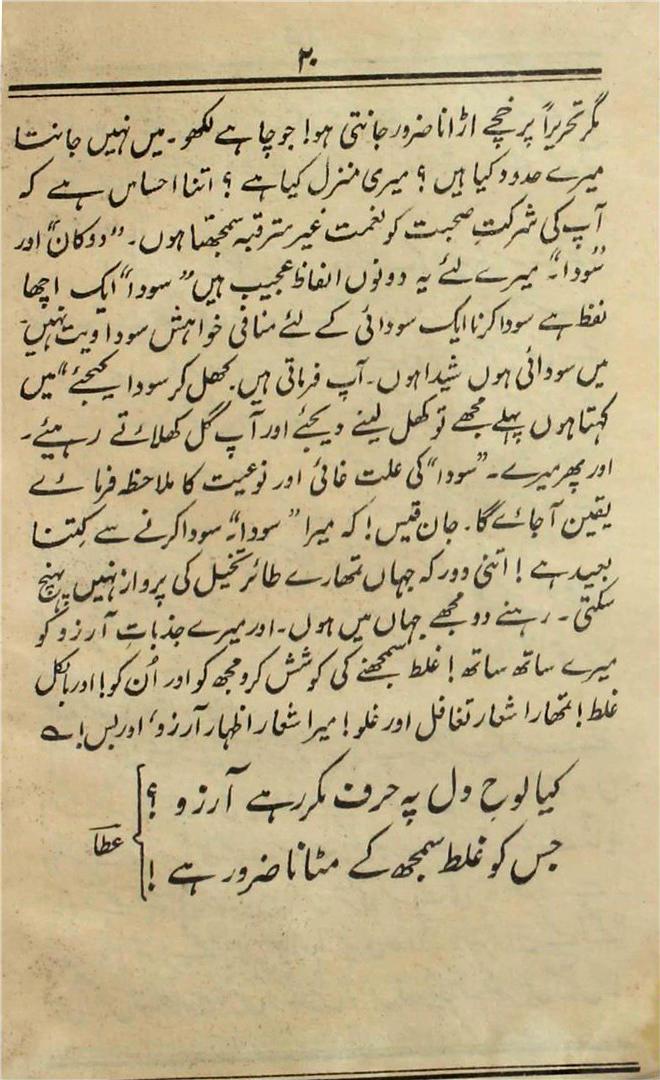 ۲۰
مگر تحریراً پرخچے اڑانا ضرور جانتی ہو! جو چاہے لکھو۔ میں نہیں جانتا
میرے حدود کیا ہیں؟ میری منزل کیا ہے؟ اتنا احساس ہے کہ
آپ کی شرکتِ صحبت کو نعمت غیر مترقبہ سمجھتا ہوں۔ "دوکان" اور
"سودا"۔ میرے لئے یہ دونوں الفاظ عجیب ہیں "سودا" ایک اچھا
لفظ ہے سودا کرنا ایک سودائی کے لئے منافی خواہش سوداویت نہیں۔
میں سودائی ہوں شیدا ہوں۔ آپ فرماتی ہیں۔ کھل کر سودا کیجئے" میں
کہتا ہوں پہلے مجھے تو کھل لینے دیجئے اور آپ گل کھلاتے رہیئے۔
اور پھر میرے۔ "سودا" کی علت غائی اور نوعیت کا ملاحظہ فرمائے
یقین آجائے گا۔ جان قیس! کہ میرا "سودا"۔ سودا کرنے سے کِتنا
بعید ہے! اتنی دور کہ جہاں تمھارے طائر تخیل کی پرواز نہیں پہنچ
سکتی۔ رہنے دو مجھے جہاں میں ہوں۔ اور میرے جذباتِ آرزو کو
میرے ساتھ ساتھ! غلط سمجھنے کی کوشش کرو مجھ کو اور اُن کو! اور بالکل
غلط! تمھارا شعار تغافل اور غلو! میرا شعار اظہار آرزو، اور بس! ؎
کیا لوحِ دل پہ حرف مکرر ہے آرزو ؟
جس کو غلط سمجھ کے مٹانا ضرور ہے !
عطا